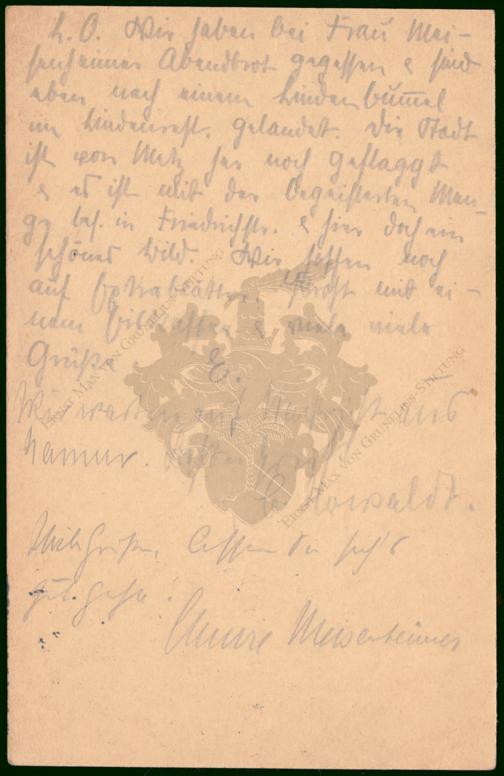 L. O. Wir haben bei Frau Mei-
senheimer Abendbrot gegessen & sind
eben nach einem Lindenbummel
im Lindenrest. gelandet. Die Stadt
ist von Metz her noch geflaggt
& es ist mit der begeisterten Men-
ge bes. in Friedrichstr. & hier doch ein
schönes Bild. Wir hoffen noch
auf Extrablätter. mit ei-
nem & viele viele
Grüße E.
Wir warten auf Nachricht aus
Namur.
Howaldt.
Viele Grüße, lassen Sie sich's
gut gehn!
Meisenheimer
ERNST MAX VON GRUNELIUS-STIFTUNG
ERNST MAX VON GRUNELIUS-STIFTUNG